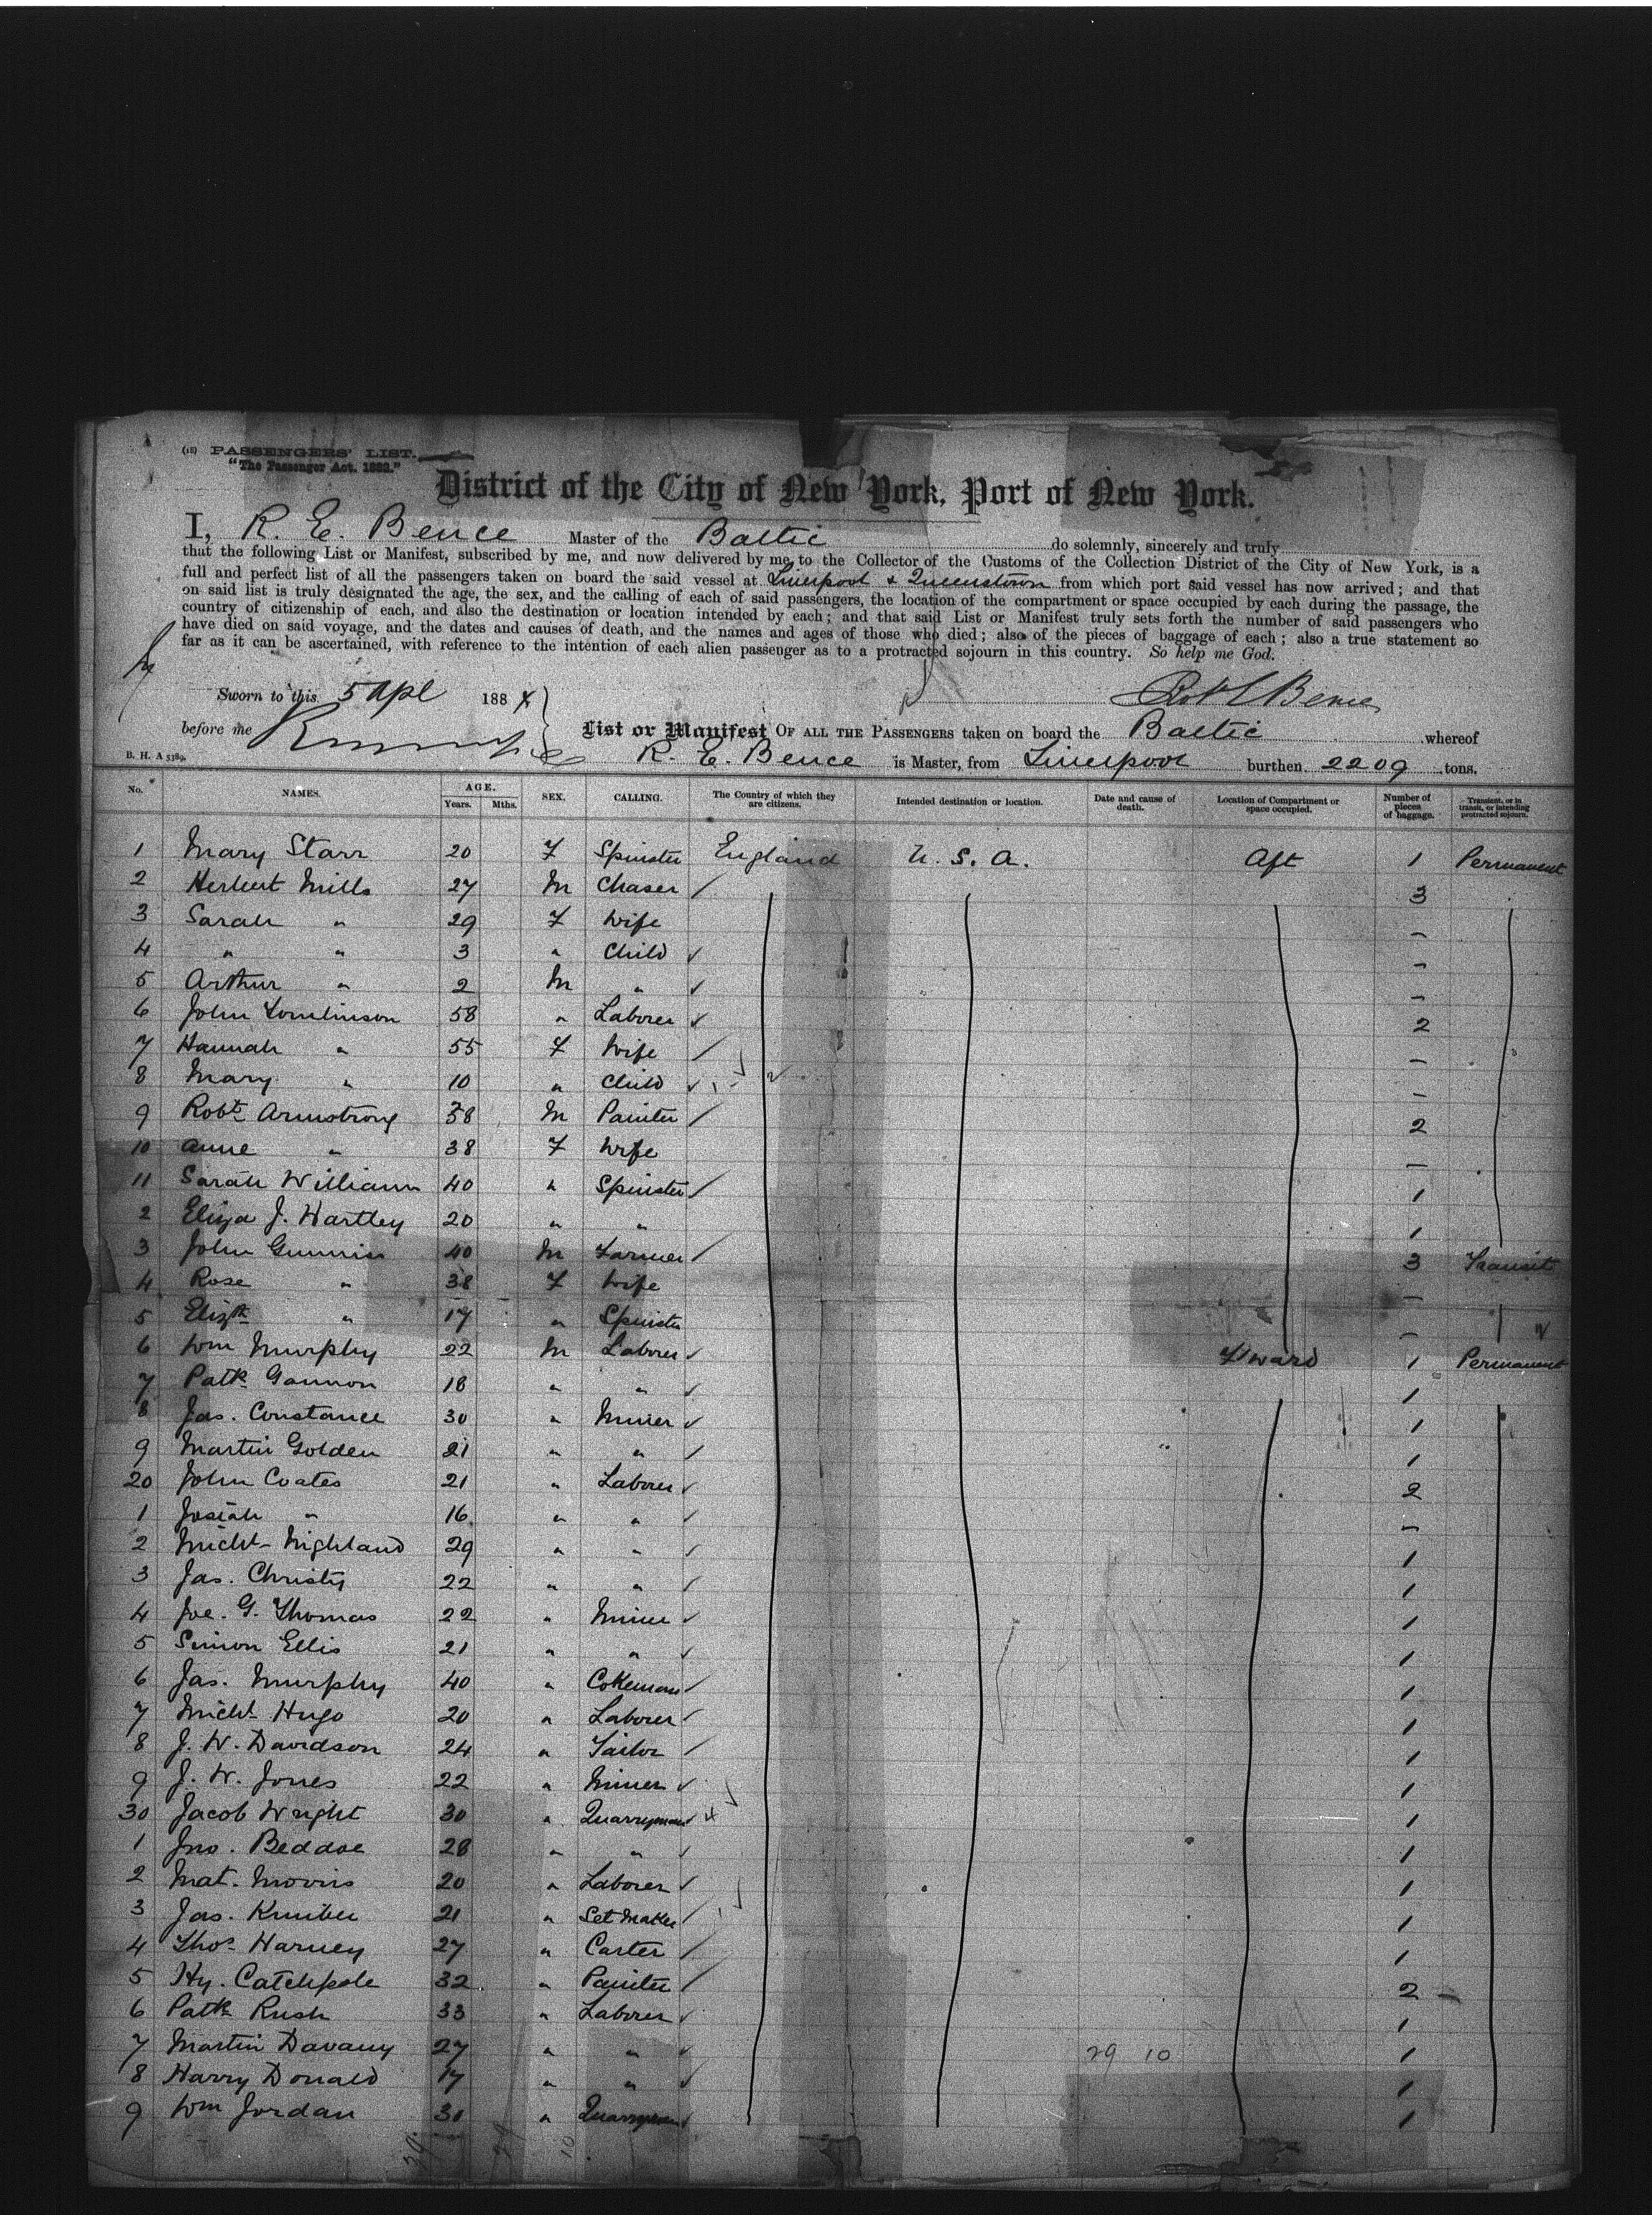 (18) PASSENGERS' LIST.
"The Passenger Act. 1882."
District of the City of New York, Port of New York.
I, R. E. Bence Master of the Baltic do solemnly, sincerely and truly
that the following List or Manifest, subscribed by me, and now delivered by me to the Collector of the Customs of the Collection District of the City of New York, is a
full and perfect list of all the passengers taken on board the said vessel at Liverpool & Queenstown from which port said vessel has now arrived; and that
on said list is truly designated the age, the sex, and the calling of each of said passengers, the location of the compartment or space occupied by each during the passage, the
country of citizenship of each, and also the destination or location intended by each; and that said List or Manifest truly sets forth the number of said passengers who
have died on said voyage, and the dates and causes of death, and the names and ages of those who died; also of the pieces of baggage of each; also a true statement so
far as it can be ascertained, with reference to the intention of each alien passenger as to a protracted sojourn in this country. So help me God.
Sworn to this 5 Apl 1884 Bence
before me
List or Manifest OF ALL THE PASSENGERS taken on board the Baltic whereof
B. H. A 5389. R. E. Bence is Master, from Liverpool burthen 2209 tons.
No. NAMES. AGE. Years. Mths. SEX. CALLING. The Country of which they are citizens. Intended destination or location. Date and cause of death. Location of Compartment or space occupied. Number of pieces of baggage. Transient, or in transit, or intending protracted sojourn.
1 Mary Starr 20 F Spinster England U. S. A. Aft 1 Permanent
2 Herbert Mills 27 M Chaser 3
3 Sarah " 29 F Wife -
4 " " 3 " Child -
5 Arthur " 2 M " -
6 John Tomlinson 58 " Laborer 2
7 Hannah " 55 F Wife -
8 Mary " 10 " Child -
9 Robt Armstrong 38 M Painter 2
10 Anne " 38 F Wife -
11 Sarah Williams 40 " Spinster 1
2 Eliza J. Hartley 20 " " 1
3 John 40 M Farmer 3 Transit
4 Rose " 38 F Wife -
5 Elizth " 17 " Spinster -
6 Wm Murphy 22 M Laborer F'ward 1 Permanent
7 Patk Gannon 18 " " 1
8 Jas. Constance 30 " Miner 1
9 Martin Golden 21 " " 1
20 John Coates 21 " Laborer 2
1 Josiah " 16 " " -
2 Michl Highland 29 " " 1
3 Jas. Christy 22 " " 1
4 Joe. G. Thomas 22 " Miner 1
5 Simon Ellis 21 " " 1
6 Jas. Murphy 40 " Cokeman 1
7 Michl Hugo 20 " Laborer 1
8 J. W. Davidson 24 " Tailor 1
9 J. W. Jones 22 " Miner 1
30 Jacob Wright 30 " Quarryman 1
1 Jno. Beddoe 28 " " 1
2 Mat. Morris 20 " Laborer 1
3 Jas. 21 " Set Maker 1
4 Thos Harvey 27 " Carter 1
5 Hy. Catchpole 32 " Painter 2
6 Patk Rush 33 " Laborer 1
7 Martin Davany 27 " " 29 10 1
8 Harry Donald 17 " " 1
9 Wm Jordan 31 " Quarryman 1